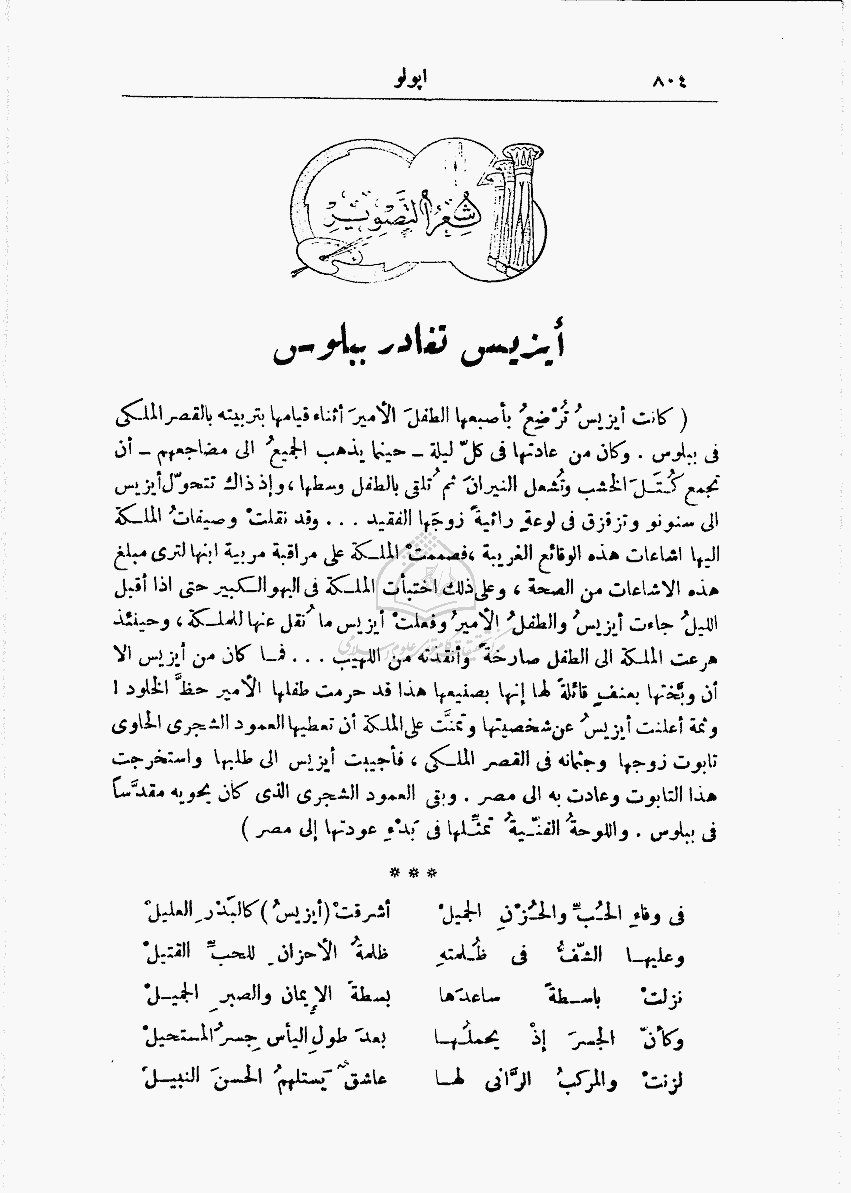 ٨٠٤
اپولو
شِعْرُ التَّصْوِيرِ
أيزيس تغادر ببلوس
( كانت أيزيسُ تُرْضِعُ بأصبعها الطفلَ الأميرَ أثناء قيامها بتربيته بالقصر الملكى
فى ببلوس . وكان من عادتها فى كلّ ليلة ـ حينما يذهب الجميعُ الى مضاجعهم ـ أن
تجمع كُتَلَ الخشب وتُشعل النيرانَ ثم تُلقى بالطفل وسطها ، وإذ ذاك تتحوّل أيزيس
الى سنونو وتزقزق فى لوعةٍ رائيةً زوجَها الفقيد ... وقد نقلتْ وصيفاتُ الملكة
اليها اشاعات هذه الوقائع الغريبة ، فصممتْ الملكة على مراقبة مربية ابنها لترى مبلغ
هذه الاشاعات من الصحة ، وعلى ذلك اختبأت الملكة فى البهو الكبير حتى اذا أقبل
الليلُ جاءت أيزيسُ والطفلُ الأميرُ وفعلتْ أيزيس ما نُقل عنها للملكة ، وحينئذ
هرعت الملكة الى الطفل صارخةً وأنقذته من اللهيب ... فما كان من أيزيس الا
أن وبّختها بعنفٍ قائلةً لها إنها بصنيعها هذا قد حرمت طفلها الأمير حظَّ الخلود !
وثمة أعلنت أيزيسُ عن شخصيتها وتمنَّت على الملكة أن تعطيها العمود الشجرى الحاوى
تابوت زوجها وجثمانه فى القصر الملكى ، فأجيبت أيزيس الى طلبها واستخرجت
هذا التابوت وعادت به الى مصر . وبقى العمود الشجرى الذى كان يحويه مقدَّساً
فى ببلوس . واللوحةُ الفنّيةُ تمثّلها فى بَدْءِ عودتها إلى مصر )
* * *
فى وفاءِ الحُبِّ والحُزْنِ الجميلْ أشرقتْ (أيزيسُ) كالبَدْرِ العليلْ
وعليها الشّفُّ فى ظُلمتهِ ظلمةُ الأحزانِ للحبِّ القتيلْ
نزلتْ باسطةً ساعدَها بسطةَ الإيمانِ والصبرِ الجميلْ
وكأنّ الجسرَ إذْ يحملُها بعدَ طولِ اليأسِ جسرُ المستحيلْ
لزنتْ والمركبُ الرَّانى لها عاشقٌ يَستلهمُ الحسنَ النبيلْ